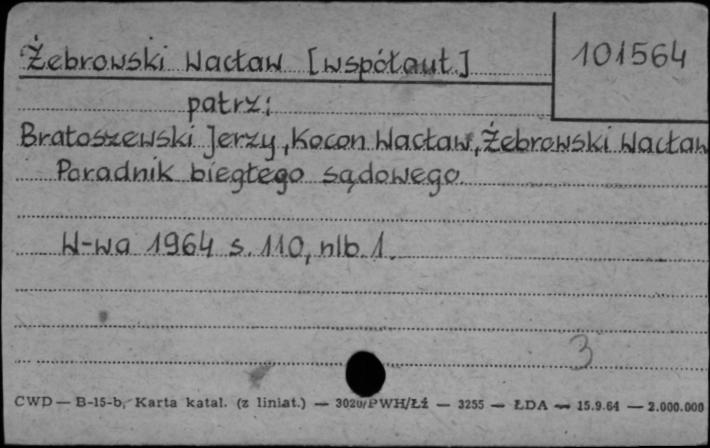 Żebrowski Wacław [współaut.]
101564
patrz:
Bratoszewski Jerzy, Kocon Wacław, Żebrowski Wacław
Poradnik biegłego sądowego
W-wa 1964 s. 110, nlb. 1.
3
CWD — B-15-b, Karta katal. (z liniat.) — 3020/PWH/Łź — 3255 — ŁDA — 15.9.64 — 2.000.000